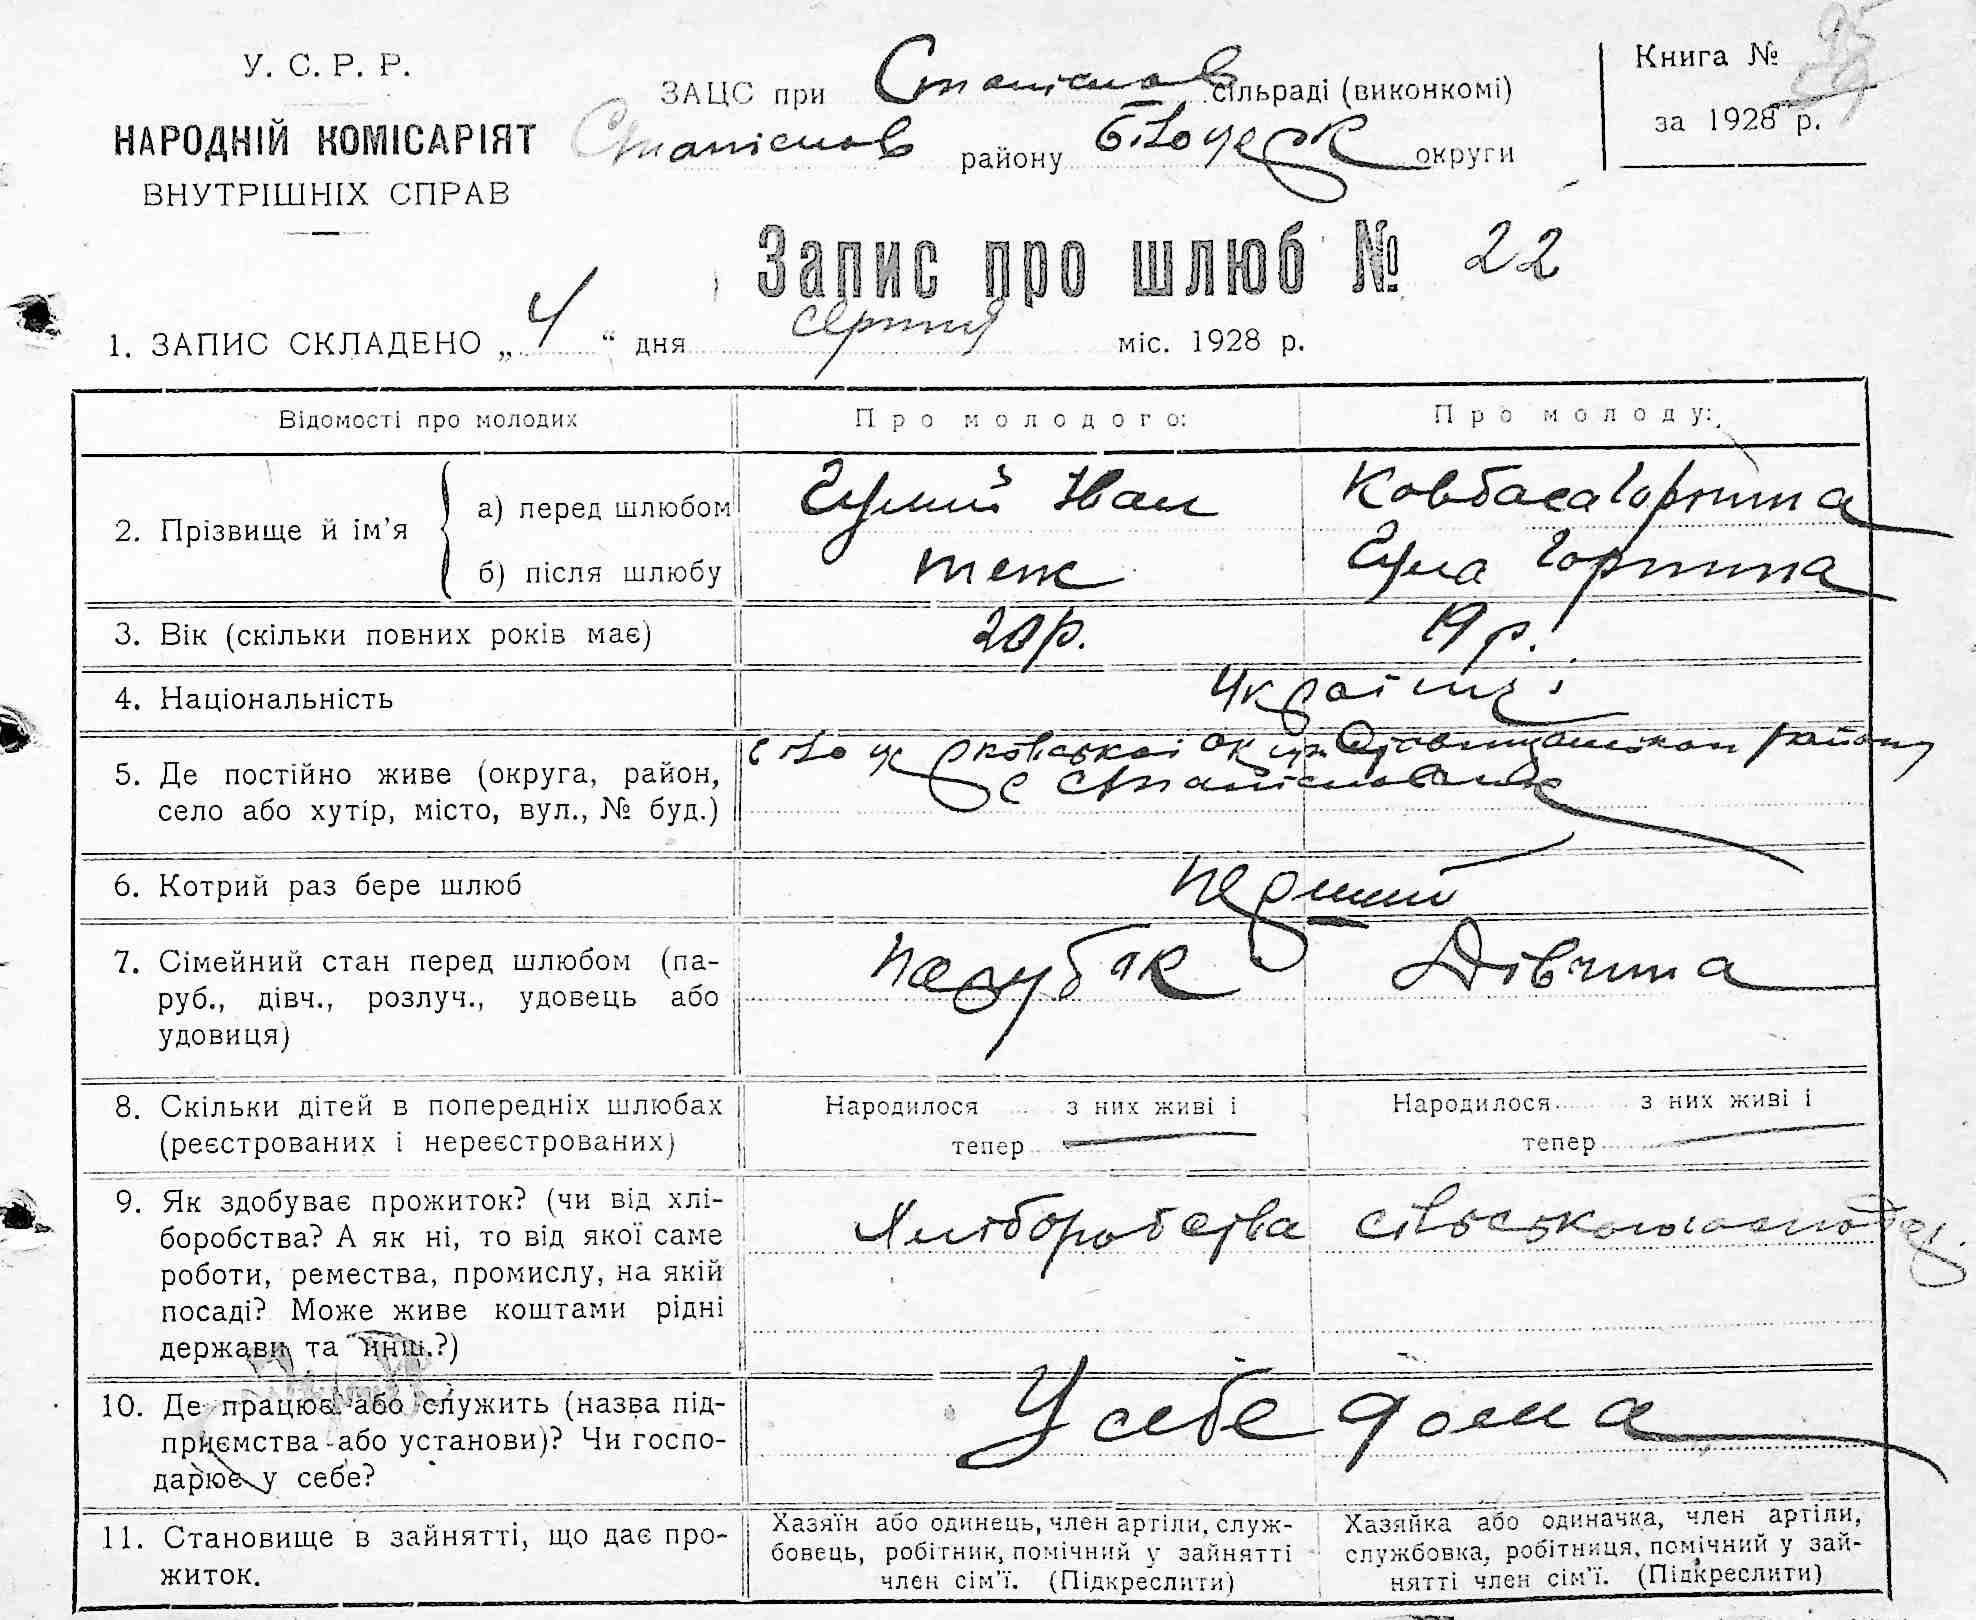 У. С. Р. Р.
НАРОДНІЙ КОМІСАРІЯТ
ВНУТРІШНІХ СПРАВ
ЗАЦС при Станіслав сільраді (виконкомі)
Станіслав району Білоцерк округи
Книга №
за 1928 р.
Запис про шлюб № 22
1. ЗАПИС СКЛАДЕНО „ 4 “ дня серпня міс. 1928 р.
Відомості про молодих Про молодого: Про молоду:
2. Прізвище й ім'я
а) перед шлюбом Іван Ковбаса Горпина
б) після шлюбу теж Горпина
3. Вік (скільки повних років має) 20 р. 19 р.
4. Національність Українці
5. Де постійно живе (округа, район,
село або хутір, місто, вул., № буд.)
району
с
6. Котрий раз бере шлюб перший
7. Сімейний стан перед шлюбом (па-
руб., дівч., розлуч., удовець або
удовиця)
парубок Дівчина
8. Скільки дітей в попередніх шлюбах
(реєстрованих і нереєстрованих)
Народилося з них живі і
тепер
Народилося з них живі і
тепер
9. Як здобуває прожиток? (чи від хлі-
боробства? А як ні, то від якої саме
роботи, ремества, промислу, на якій
посаді? Може живе коштами рідні
держави та инш.?)
Хліборобства
10. Де працює або служить (назва під-
приємства або установи)? Чи госпо-
дарює у себе?
У себе дома
11. Становище в зайнятті, що дає про-
житок.
Хазяїн або одинець, член артіли, служ-
бовець, робітник, помічний у зайнятті
член сім'ї. (Підкреслити)
Хазяйка або одиначка, член артіли,
службовка, робітниця, помічний у зай-
нятті член сім'ї. (Підкреслити)